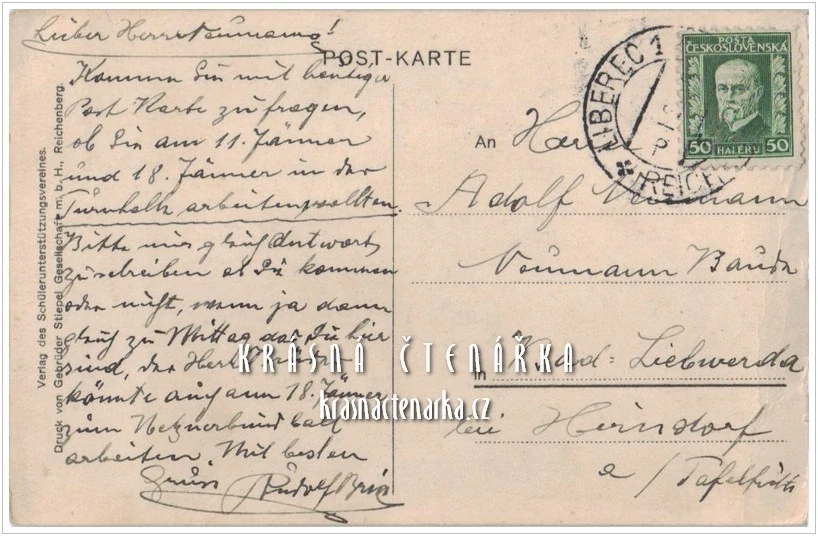 Lieber Herr Neumann!
Komme Sie mit heutiger
Post Karte zu fragen,
ob Sie am 11. Jänner
und 18. Jänner in der
Turnhalle arbeiten wollten.
Bitte uns gleich Antwort
zu schreiben ob Sie kommen
oder nicht, wenn ja dann
gleich zu Mittag das Sie hier
sind, der Herr
könnte auch am 18. Jänner
zum ball
arbeiten Mit besten
Gruss Rudolf
POST-KARTE
An Herrn
Adolf Neumann
Neumann Baude
in Bad-Liebwerda
bei Heindorf
a/Tafelfichte
LIBEREC 1
REICH
POSTA
ČESKOSLOVENSKÁ
50 HALÉŘŮ 50
Verlag des Schülerunterstützungsvereines.
Druck von Gebrüder Stiepel Gesellschaft m. b. H., Reichenberg.
KRÁSNÁ ČTENÁŘKA
krasnactenarka.cz